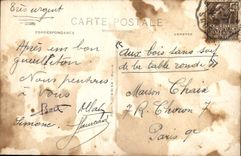 Très urgent
CARTE POSTALE
CORRESPONDANCE
ADRESSE
Après un bon
gueuleton
Nous penserons à
vous
Simone
"Aux bois sans soif
de la table ronde"
Maison Chaix
7 R. Choron 7
Paris 9e